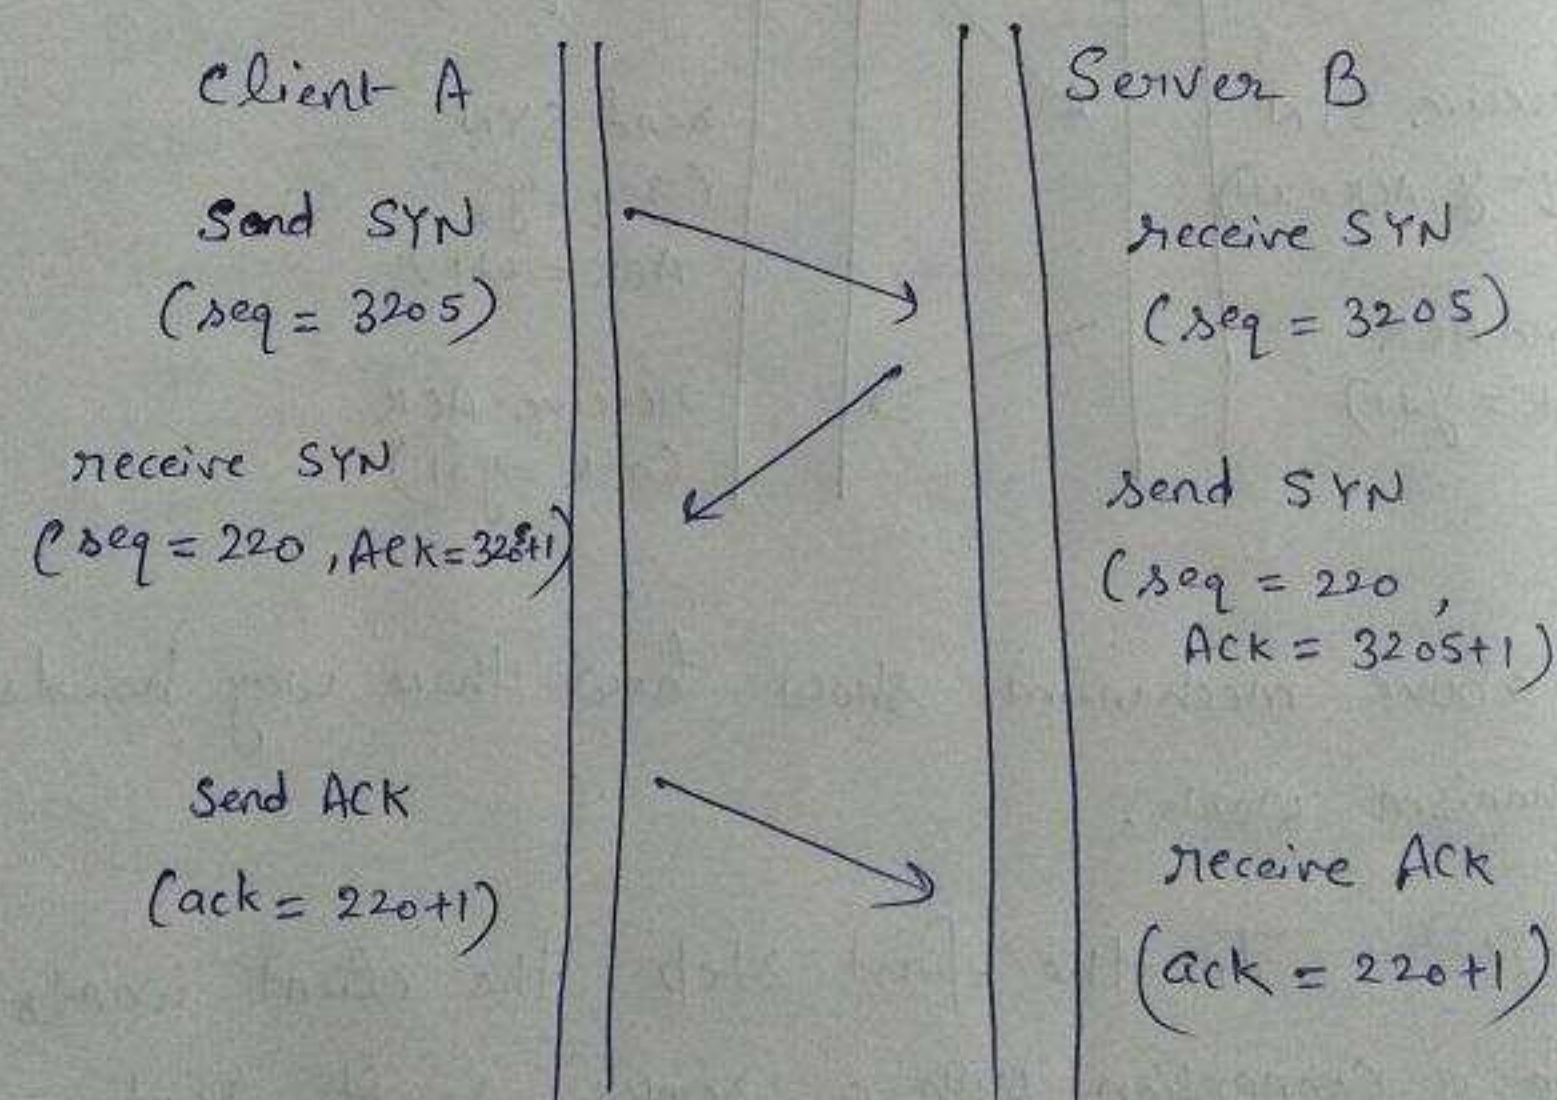 Client A
Send SYN
(seq = 3205)
receive SYN
(seq = 220, Ack=3205+1)
Send ACK
(ack = 220+1)
Server B
receive SYN
(seq = 3205)
send SYN
(seq = 220,
Ack = 3205+1)
receive ACK
(ack = 220+1)